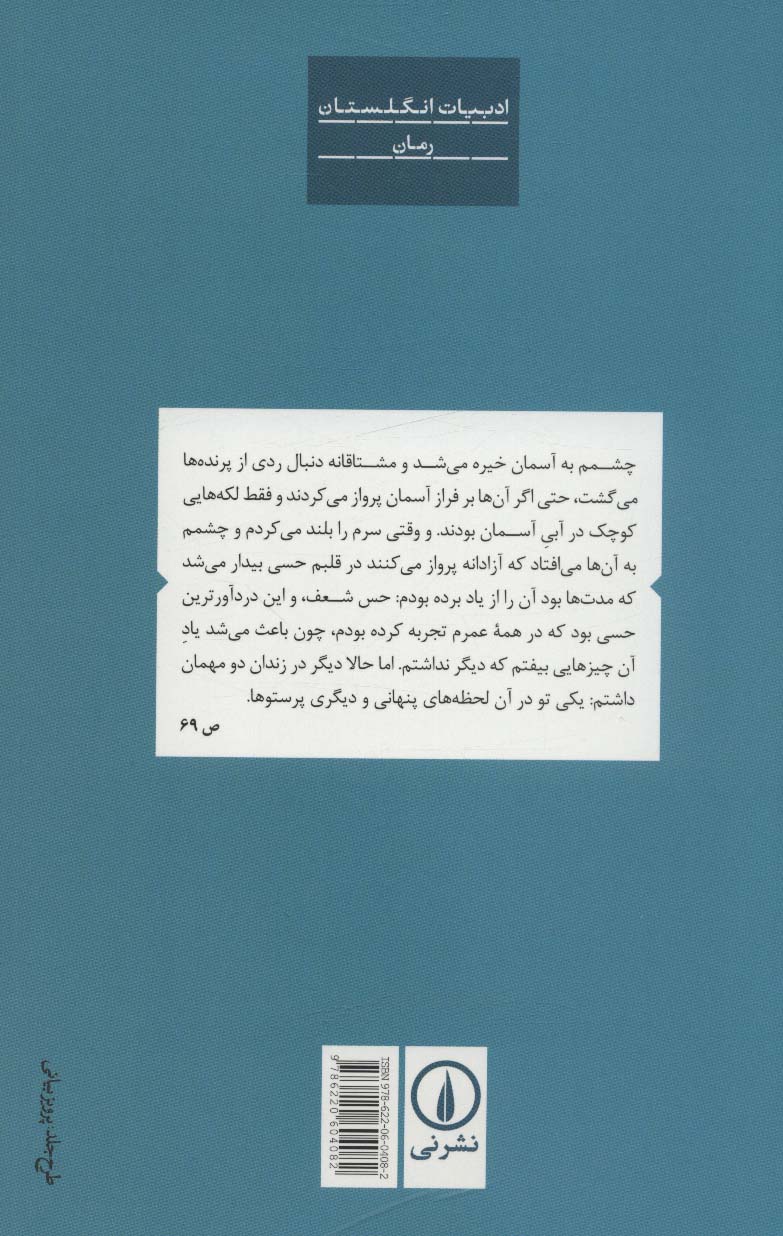 ادبیات انگلستان
رمان
چشمم به آسمان خیره می‌شد و مشتاقانه دنبال ردی از پرنده‌ها
می‌گشت، حتی اگر آن‌ها بر فراز آسمان پرواز می‌کردند و فقط لکه‌هایی
کوچک در آبیِ آسمان بودند. و وقتی سرم را بلند می‌کردم و چشمم
به آن‌ها می‌افتاد که آزادانه پرواز می‌کنند در قلبم حسی بیدار می‌شد
که مدت‌ها بود آن را از یاد برده بودم: حس شعف، و این دردآورترین
حسی بود که در همهٔ عمرم تجربه کرده بودم، چون باعث می‌شد یادِ
آن چیزهایی بیفتم که دیگر نداشتم. اما حالا دیگر در زندان دو مهمان
داشتم: یکی تو در آن لحظه‌های پنهانی و دیگری پرستوها.
ص ۶۹
طرح جلد: پرویز بیانی
ISBN 978-622-06-0408-2
9 786220 604082
نشر نی